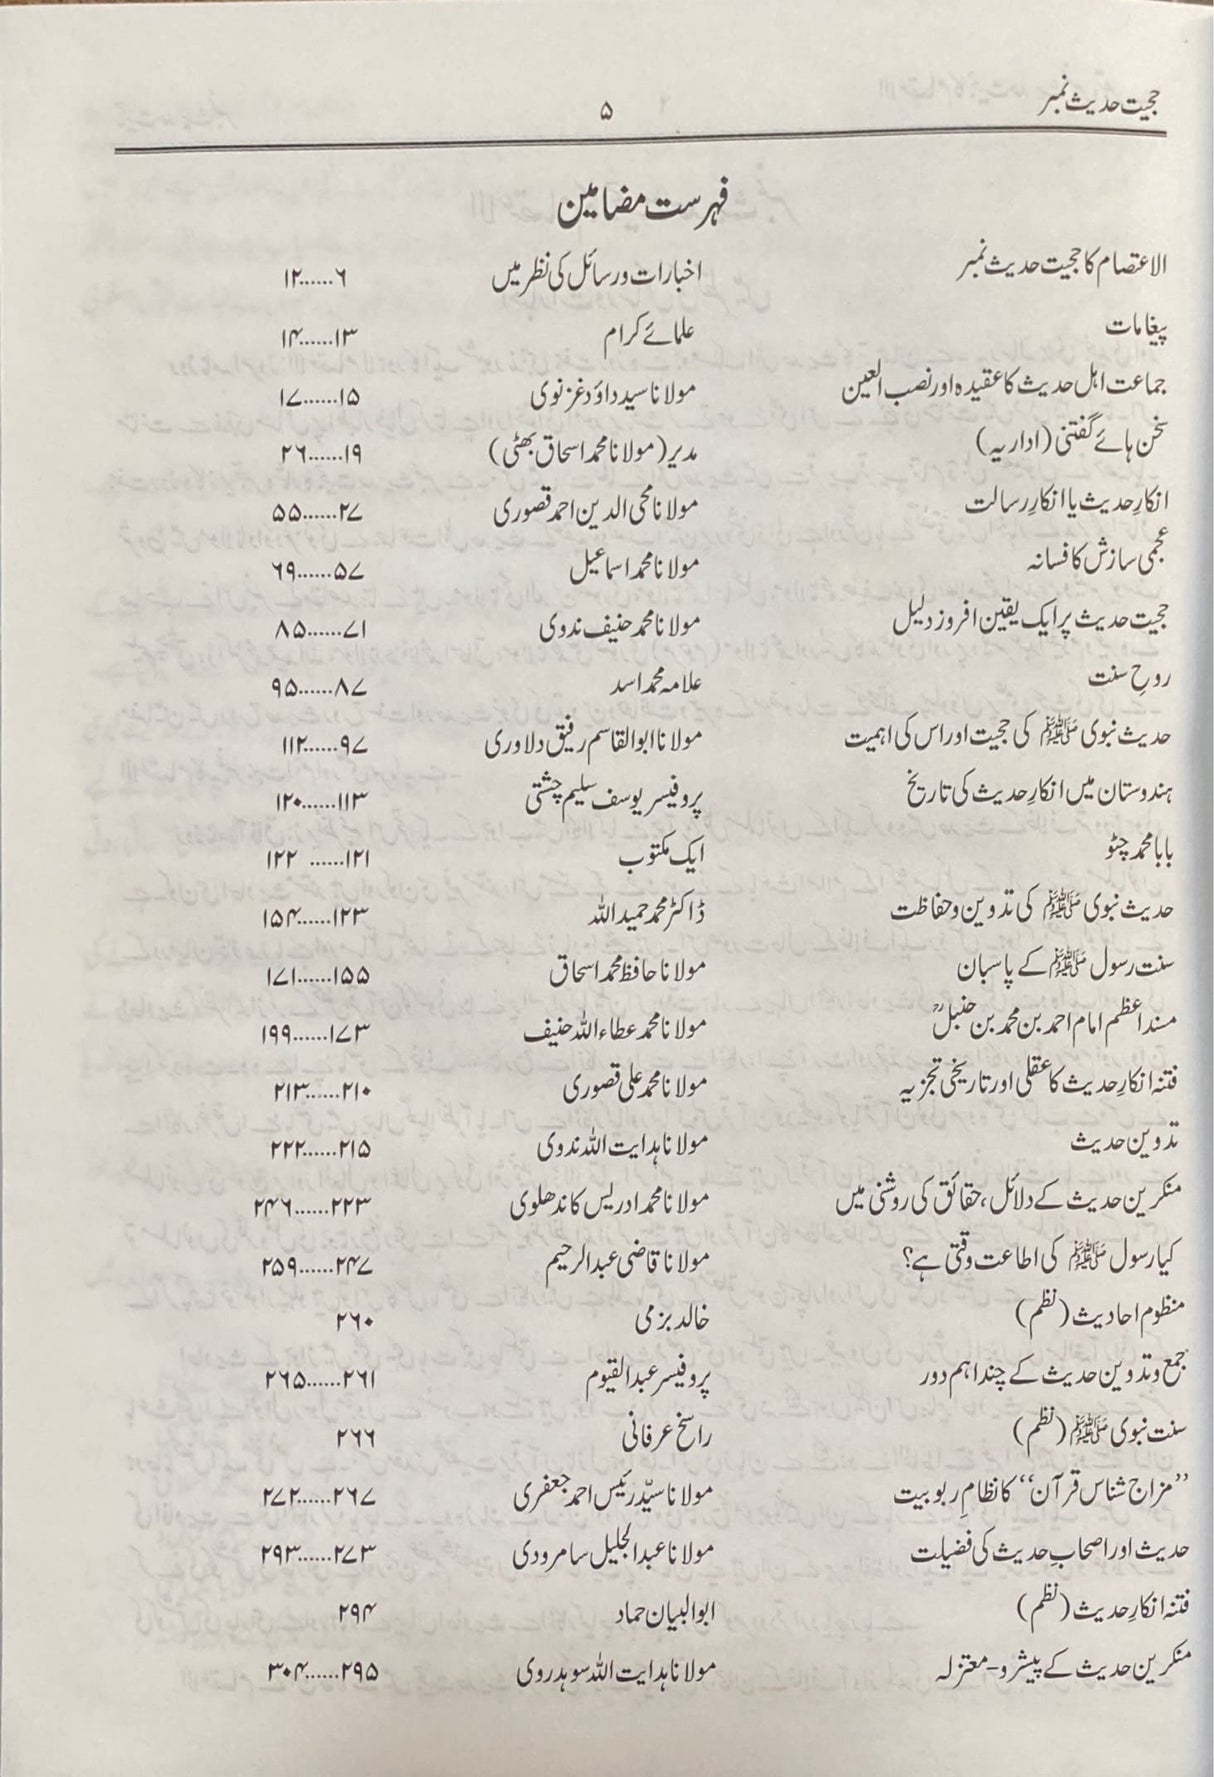 حجیت حدیث نمبر ۵
فہرست مضامین
الاعتصام کا حجیت حدیث نمبر اخبارات ورسائل کی نظر میں ۶......۱۲
پیغامات علمائے کرام ۱۳......۱۴
جماعت اہل حدیث کا عقیدہ اور نصب العین مولانا سید داؤد غزنوی ۱۵......۱۷
سخن ہائے گفتنی (اداریہ) مدیر (مولانا محمد اسحاق بھٹی) ۱۹......۲۶
انکارِ حدیث یا انکارِ رسالت مولانا محی الدین احمد قصوری ۲۷......۵۵
عجمی سازش کا فسانہ مولانا محمد اسماعیل ۵۷......۶۹
حجیت حدیث پر ایک یقین افروز دلیل مولانا محمد حنیف ندوی ۷۱......۸۵
روحِ سنت علامہ محمد اسد ۸۷......۹۵
حدیث نبوی ﷺ کی حجیت اور اس کی اہمیت مولانا ابو القاسم رفیق دلاوری ۹۷......۱۱۲
ہندوستان میں انکارِ حدیث کی تاریخ پروفیسر یوسف سلیم چشتی ۱۱۳......۱۲۰
بابا محمد چٹو ایک مکتوب ۱۲۱...... ۱۲۲
حدیث نبوی ﷺ کی تدوین وحفاظت ڈاکٹر محمد حمید اللہ ۱۲۳......۱۵۴
سنت رسول ﷺ کے پاسبان مولانا حافظ محمد اسحاق ۱۵۵......۱۷۱
مسند اعظم امام احمد بن محمد بن حنبلؒ مولانا محمد عطاء اللہ حنیف ۱۷۳......۱۹۹
فتنہ انکارِ حدیث کا عقلی اور تاریخی تجزیہ مولانا محمد علی قصوری ۲۱۰......۲۱۳
تدوین حدیث مولانا ہدایت اللہ ندوی ۲۱۵......۲۲۲
منکرین حدیث کے دلائل، حقائق کی روشنی میں مولانا محمد ادریس کاندھلوی ۲۲۳......۲۴۶
کیا رسول ﷺ کی اطاعت وقتی ہے؟ مولانا قاضی عبدالرحیم ۲۴۷......۲۵۹
منظوم احادیث (نظم) خالد بزمی ۲۶۰
جمع وتدوین حدیث کے چند اہم دور پروفیسر عبدالقیوم ۲۶۱......۲۶۵
سنت نبوی ﷺ (نظم) راسخ عرفانی ۲۶۶
’’مزاج شناس قرآن‘‘ کا نظامِ ربوبیت مولانا سیّد رئیس احمد جعفری ۲۶۷......۲۷۲
حدیث اور اصحابِ حدیث کی فضیلت مولانا عبدالجلیل سامرودی ۲۷۳......۲۹۳
فتنہ انکارِ حدیث (نظم) ابوالبیان حماد ۲۹۴
منکرین حدیث کے پیشرو-معتزلہ مولانا ہدایت اللہ سوہدروی ۲۹۵......۳۰۴